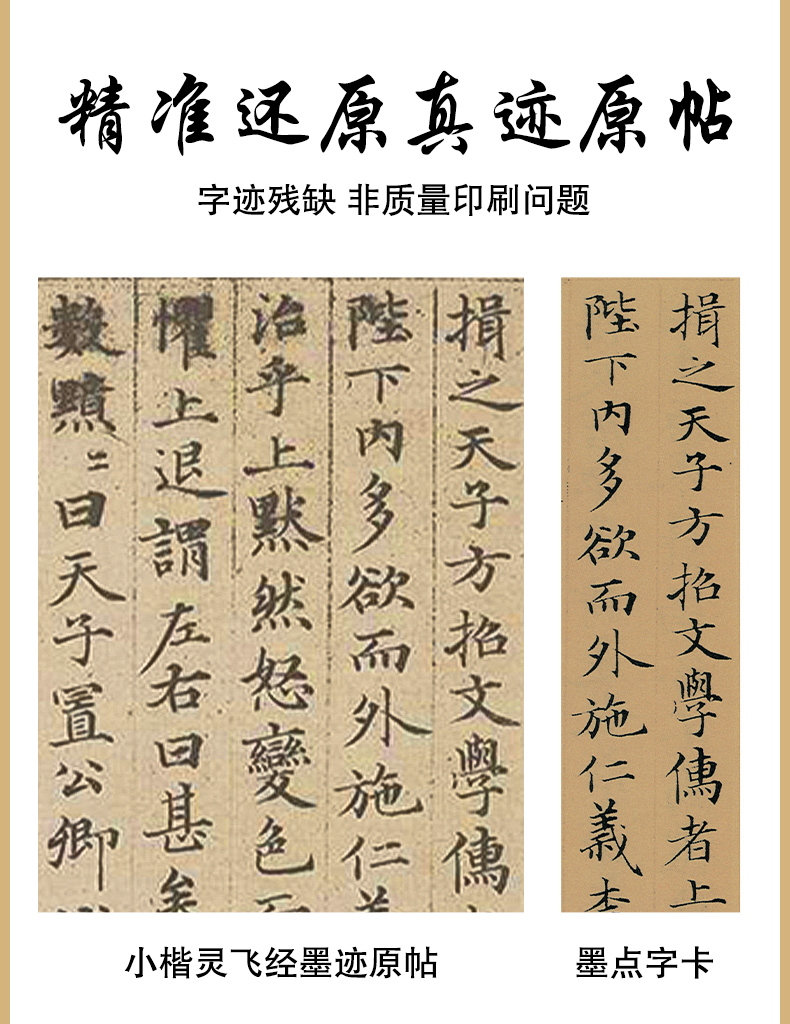 精准还原真迹原帖
字迹残缺 非质量印刷问题
揖之天子方招文學儁
陛下内多欲而外施仁義
治乎上默然怒變色而
懼上退謂左右曰甚矣
數黯〻曰天子置公卿
揖之天子方招文學儁者上
陛下内多欲而外施仁義
小楷灵飞经墨迹原帖
墨点字卡